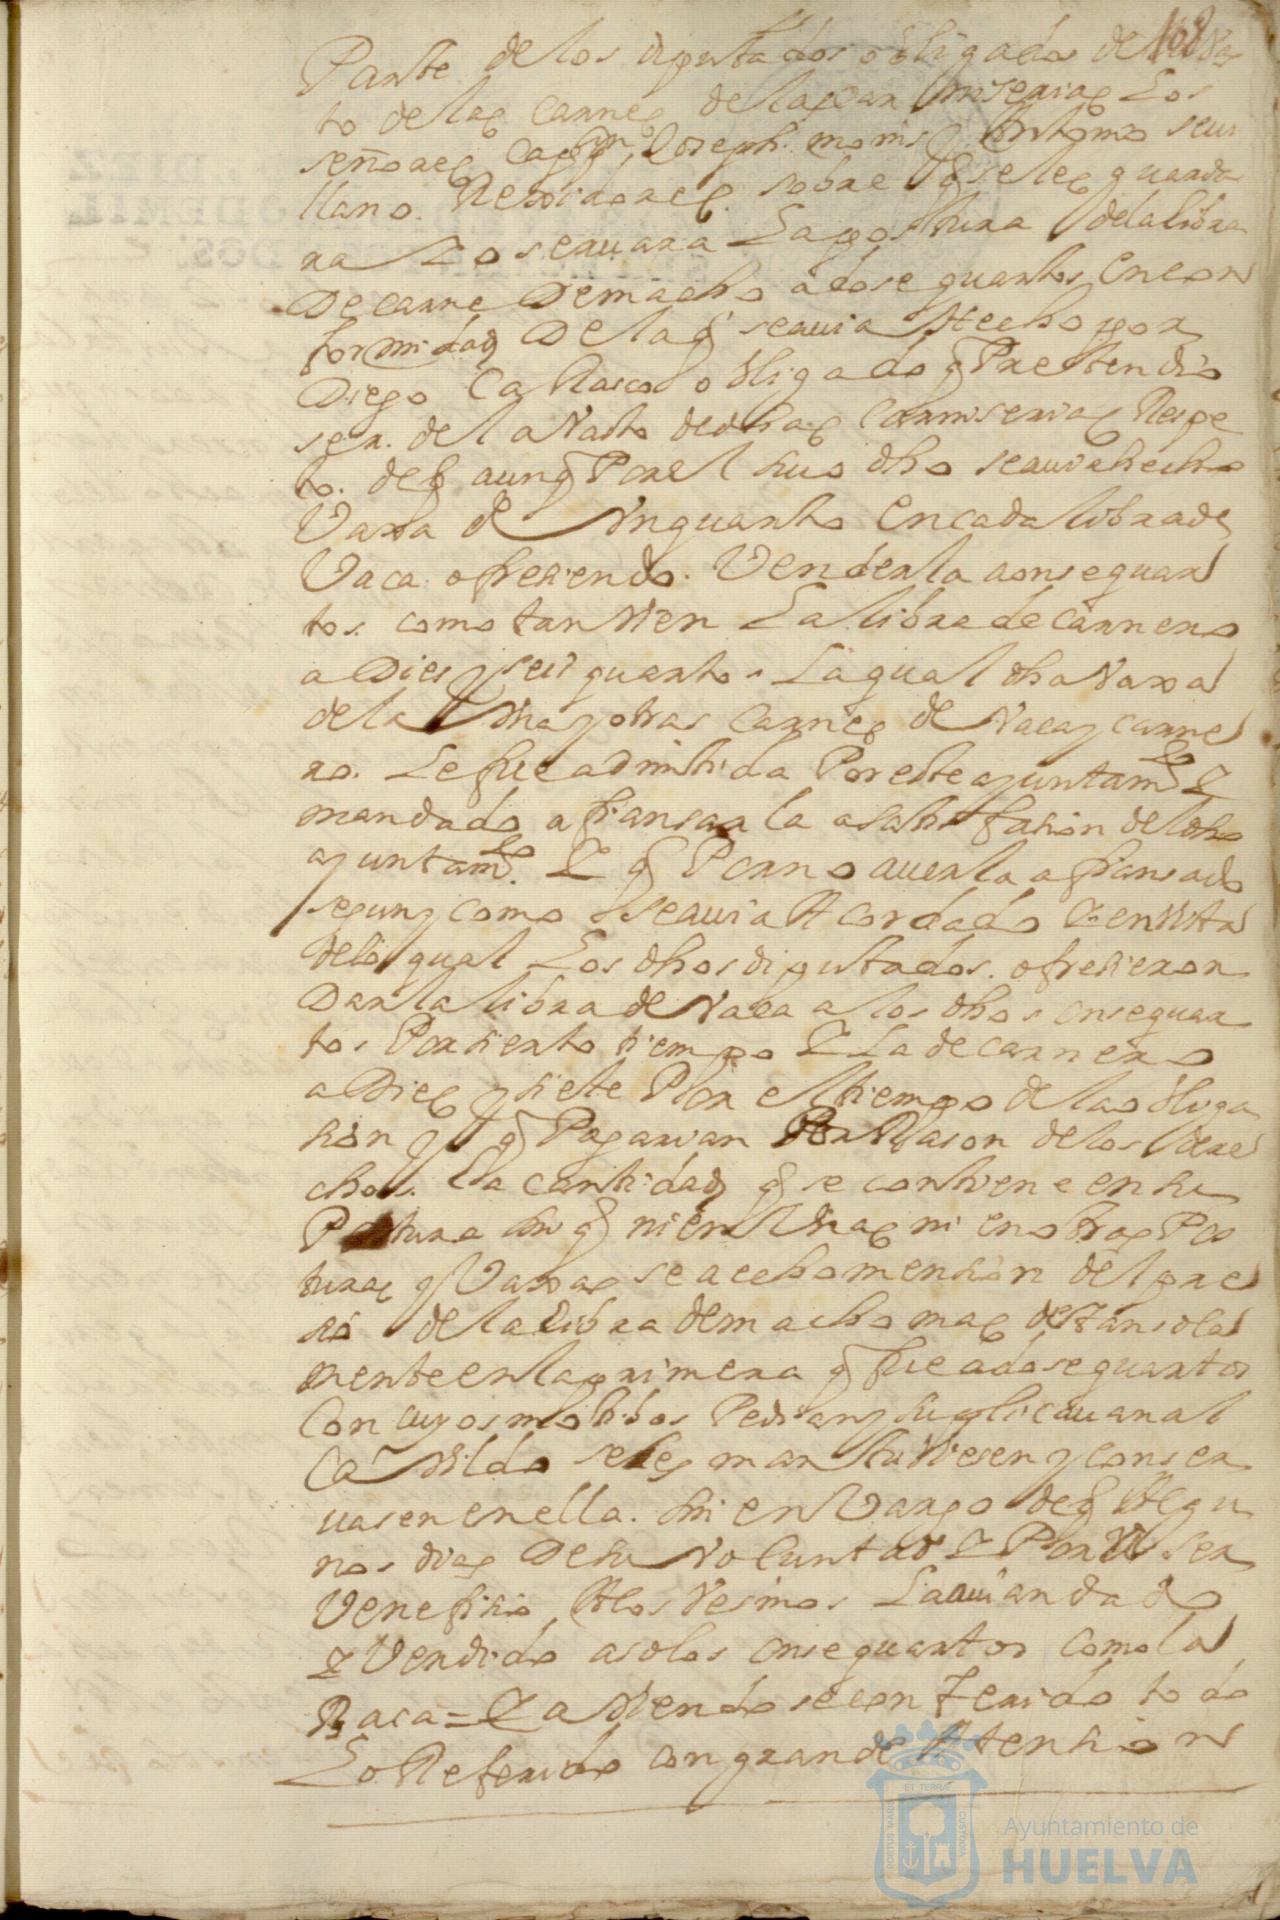 168
Parte de los diputados obligados del Vas
to de las carnes de las carniserias Los
señores Capn. Joseph monis y Antonio seui
llano. Rexidores. sobre q se les guarda
ra y oseruara La postura de la libra
De carne De macho a dose quartos En con
formidad De la q seauia Hecho por
Diego Carrasco obligado q Pretendio
ser. del aVasto de dhas Carniserias Respe
to. de q aunq Por el suso dho seauia hecho
Vaxa de Vn quarto En cada libra de
Vaca ofresiendo. Venderla a onse quar
tos. como tanvien La libra de carnero
a Dies y seis quartos. La qual dha Vaxa
de la Vna y otras carnes de Vaca y carne
ro. Le fue admitida Por este ayuntamto. Y
mandado afiansarla a satisfasion del dho
ayuntamto. Y q Por no auerla afiansado
segun y como se auia Acordado Y en Vista
de lo qual Los dhos diputados. ofresieron
Dar la libra de Vaca a los dhos onse quar
tos Por sierto tiempo Y La de carnero
a Dies y siete Por el tiempo de la obliga
sion y q Pagarian Por Rason de los dere
chos. La cantidad q se contiene en su
Postura sin q ni en Vnas ni en otras Pos
turas y Vaxas se aecho mension del pre
sio de la Libra de macho mas de tan sola
mente en la primera q fue a dose quartos
Con cuyos motibos Pedian y suplicauan al
Cavildo seles mantuviesen y conser
uasen en ella. sin enVargo de q Algu
nos dias De su Voluntad Y Por ser
Venefisio A los Vesinos La auian dado
Y Vendido a solos onse quartos como la
Baca = Y aviendose conferido todo
Lo Referido con grande Atension
ET TERRÆ
PORTUS MARIS
CUSTODIA
Ayuntamiento de
HUELVA